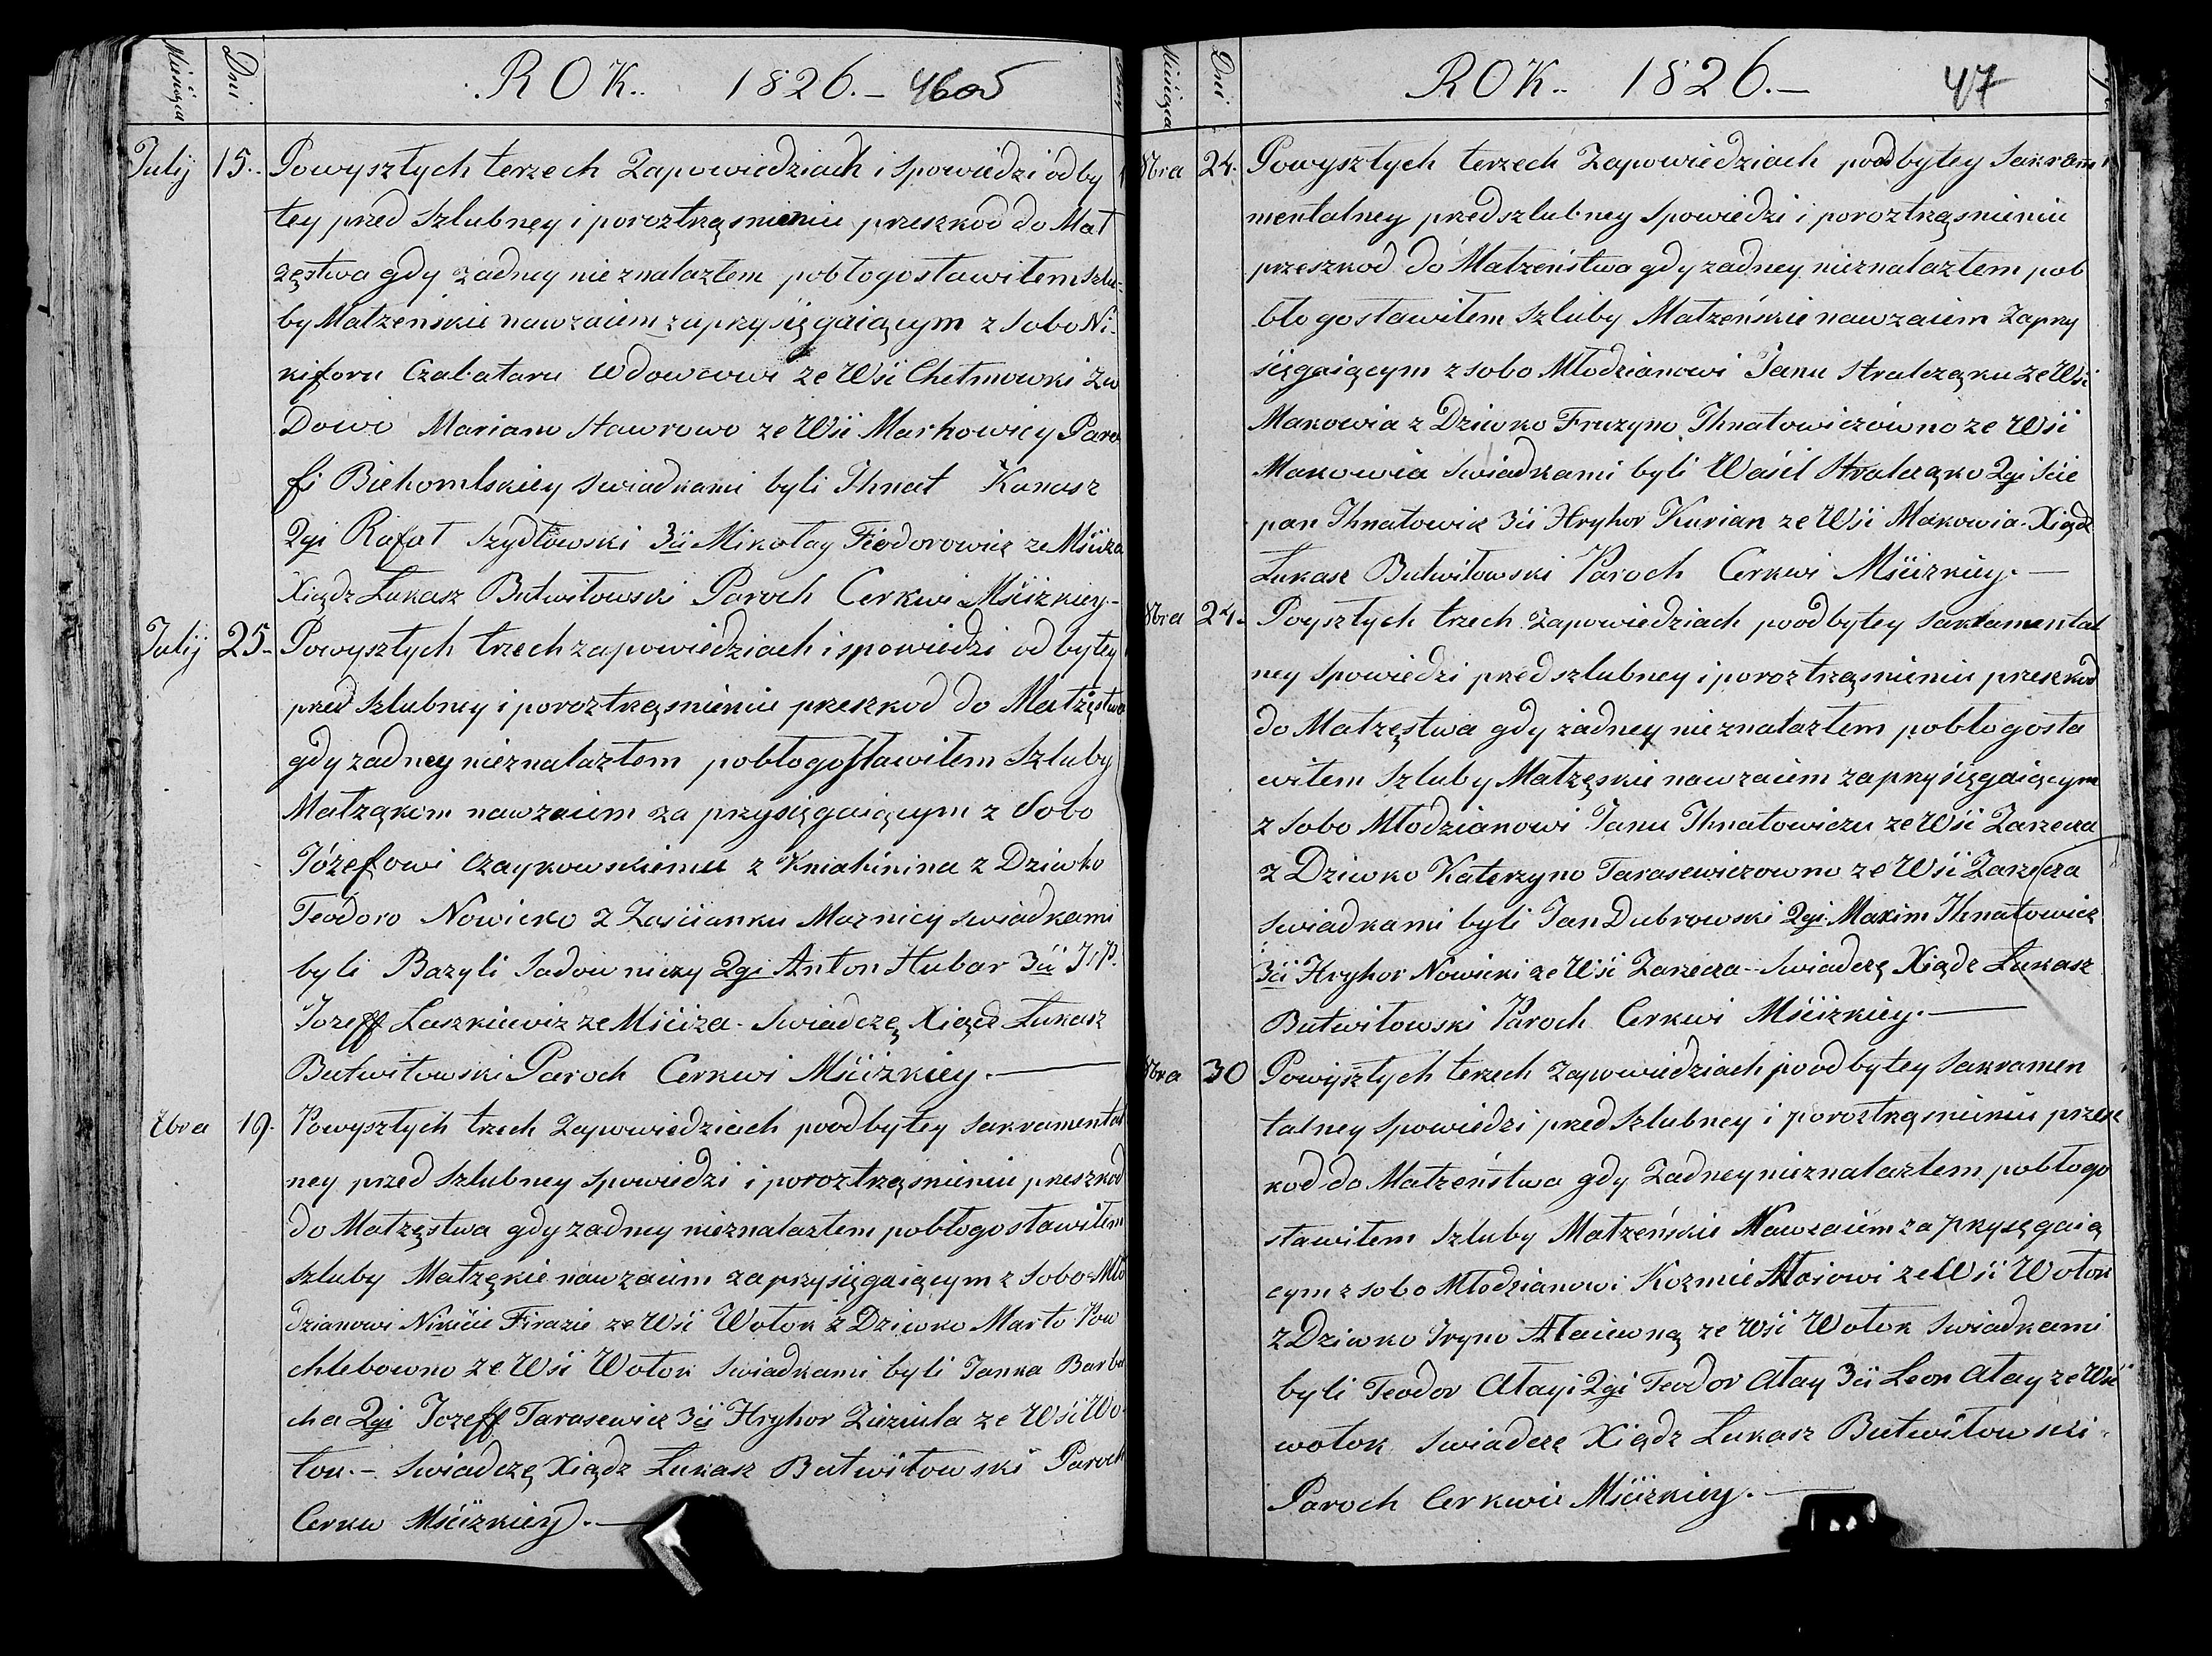 Miesiąca Dni ROK. 1826.– 46os
July 15. Powyszłych terzech Zapowiedziach i spowiedzi odby
tey pred szlubney i poroztrząsnieniu preszkod do Mał
zęstwa gdy zadney nieznalazłem pobłogosławiłem szlu-
by Małzeńskie nawzaiem zaprzysięgaiącym z sobo Ni-
kiforu Czabataru Wdowcowi ze Wśi Chełmowki z w
Dowo Mariano Hawrowo ze Wśi Markowicy Para
fi Biehomlskiey swiadkami byli Ihnat Kanasz
2gi Rafał Szydłowski 3ći Mikołay Fiodorowicz ze Mśćiża
Xiądz Łukasz Butwiłowski Paroch Cerkwi Mśćizkiey.–
July 25. Powyszłych trzech zapowiedziach i spowiedzi odbytey
pred szlubney i poroztrząsnieniu preszkod do Małzęstwa
gdy zadney nieznalazłem pobłogosławiłem Szluby
Małząkim nawzaiem za przysięgaiącym z Sobo
Józefowi Czaykowskiemu z Kniahinina z Dziewko
Teodoro Nowicko z Zaścianku Maznicy swiadkami
byli Bazyli Sadowniczy 2gi Anton Hubar 3ći J.P.
Jozeff Laszkiewiz ze Mśćiża. Swiadczę Xiądz Łukasz
Butwiłowski Paroch Cerkwi Mśćizkiey.
7bra 19. Powyszłych trzech Zapowiedziach poodbytey sakramental
ney przed szlubney spowiedzi i poroztrząsnieniu preszkod
do Małzęstwa gdy zadney nieznalazłem pobłogosławiłem
szluby Małzękie nawzaiem zaprzysięgaiącym z sobo Mło
dzianowi Nikicie Firazie ze Wśi Wołok z Dziewko Marto Pow
chlebowno ze Wśi Wołok swiadkami byli Janka Barba
cha 2gi Jozeff Tarasewicz 3ći Hryhor Zieziula ze Wśi Wo-
łok.– Swiadczę Xiądz Łukasz Butwiłowski Paroch
Cerkw Mśćizkiey.–
Miesiąca Dni ROK. 1826.– 47
8bra 24. Powyszłych terzech Zapowiedziach poodbytey Sakram
mentalney przedszlubney Spowiedzi i poroztrząsnieniu
przeszkod do Małzeństwa gdy zadney nieznalazłem pob
błogosławiłem Szluby Małzeńskie nawzaiem Zaprzy
sięgaiącym z sobo Młodzianowi Janu Stralcząku ze Wśi
Makowia z Dziewko Fruzyno Ihnatowiczówno ze Wśi
Makowia swiadkami byli Waśil Stralcząko 2gi Scie
pan Ihnatowicz 3ći Hryhor Kurian ze Wśi Makowia. Xiądz
Łukasz Butwiłowski Paroch Cerkwi Mśćizkiey.–
8bra 24. Poyszłych trzech Zapowiedziach poodbytey sakramental
ney Spowiedzi przed szlubney i poroztrząsnieniu preszkod
do Małzęstwa gdy żadney nieznalazłem pobłogosła
wiłem Szluby Małzęskie nawzaiem zaprzysięgaiącym
z Sobo Młodzianowi Janu Ihnatowiczu ze Wśi Zarzecza
z Dziewko Katerzyno Tarasewiczowno ze Wśi Zarzecza
swiadkami byli Jan Dubrowski 2gi Maxim Ihnatowicz
3ći Hryhor Nowicki ze Wśi Zarzecza – Swiadczę Xiądz Łukasz
Butwiłowski Paroch Cerkwi Mśćizkiey.
8bra 30 Powyszłych terzech Zapowiedziach poodbytey Sakramen
talney spowiedzi przed szlubney i poroztrząsnieniu przesz
kod do Małzeństwa gdy Zadney nieznalazłem pobłogo
sławiłem Szluby Małzeńskie Nawzaiem zaprzysęgaią
cym z sobo Młodzianowi Kozmie Ałaiowi ze Wśi Wołok
z Dziewko Iryno Ałaiewną ze Wśi Wołok Swiadkami
byli Teodor Ałayi 2gi Teodor Ałay 3ći Leon Ałay ze Wśi
wołok swiadczę Xiądz Łukasz Butwiłowski
Paroch Cerkwie Mśćizkiey.